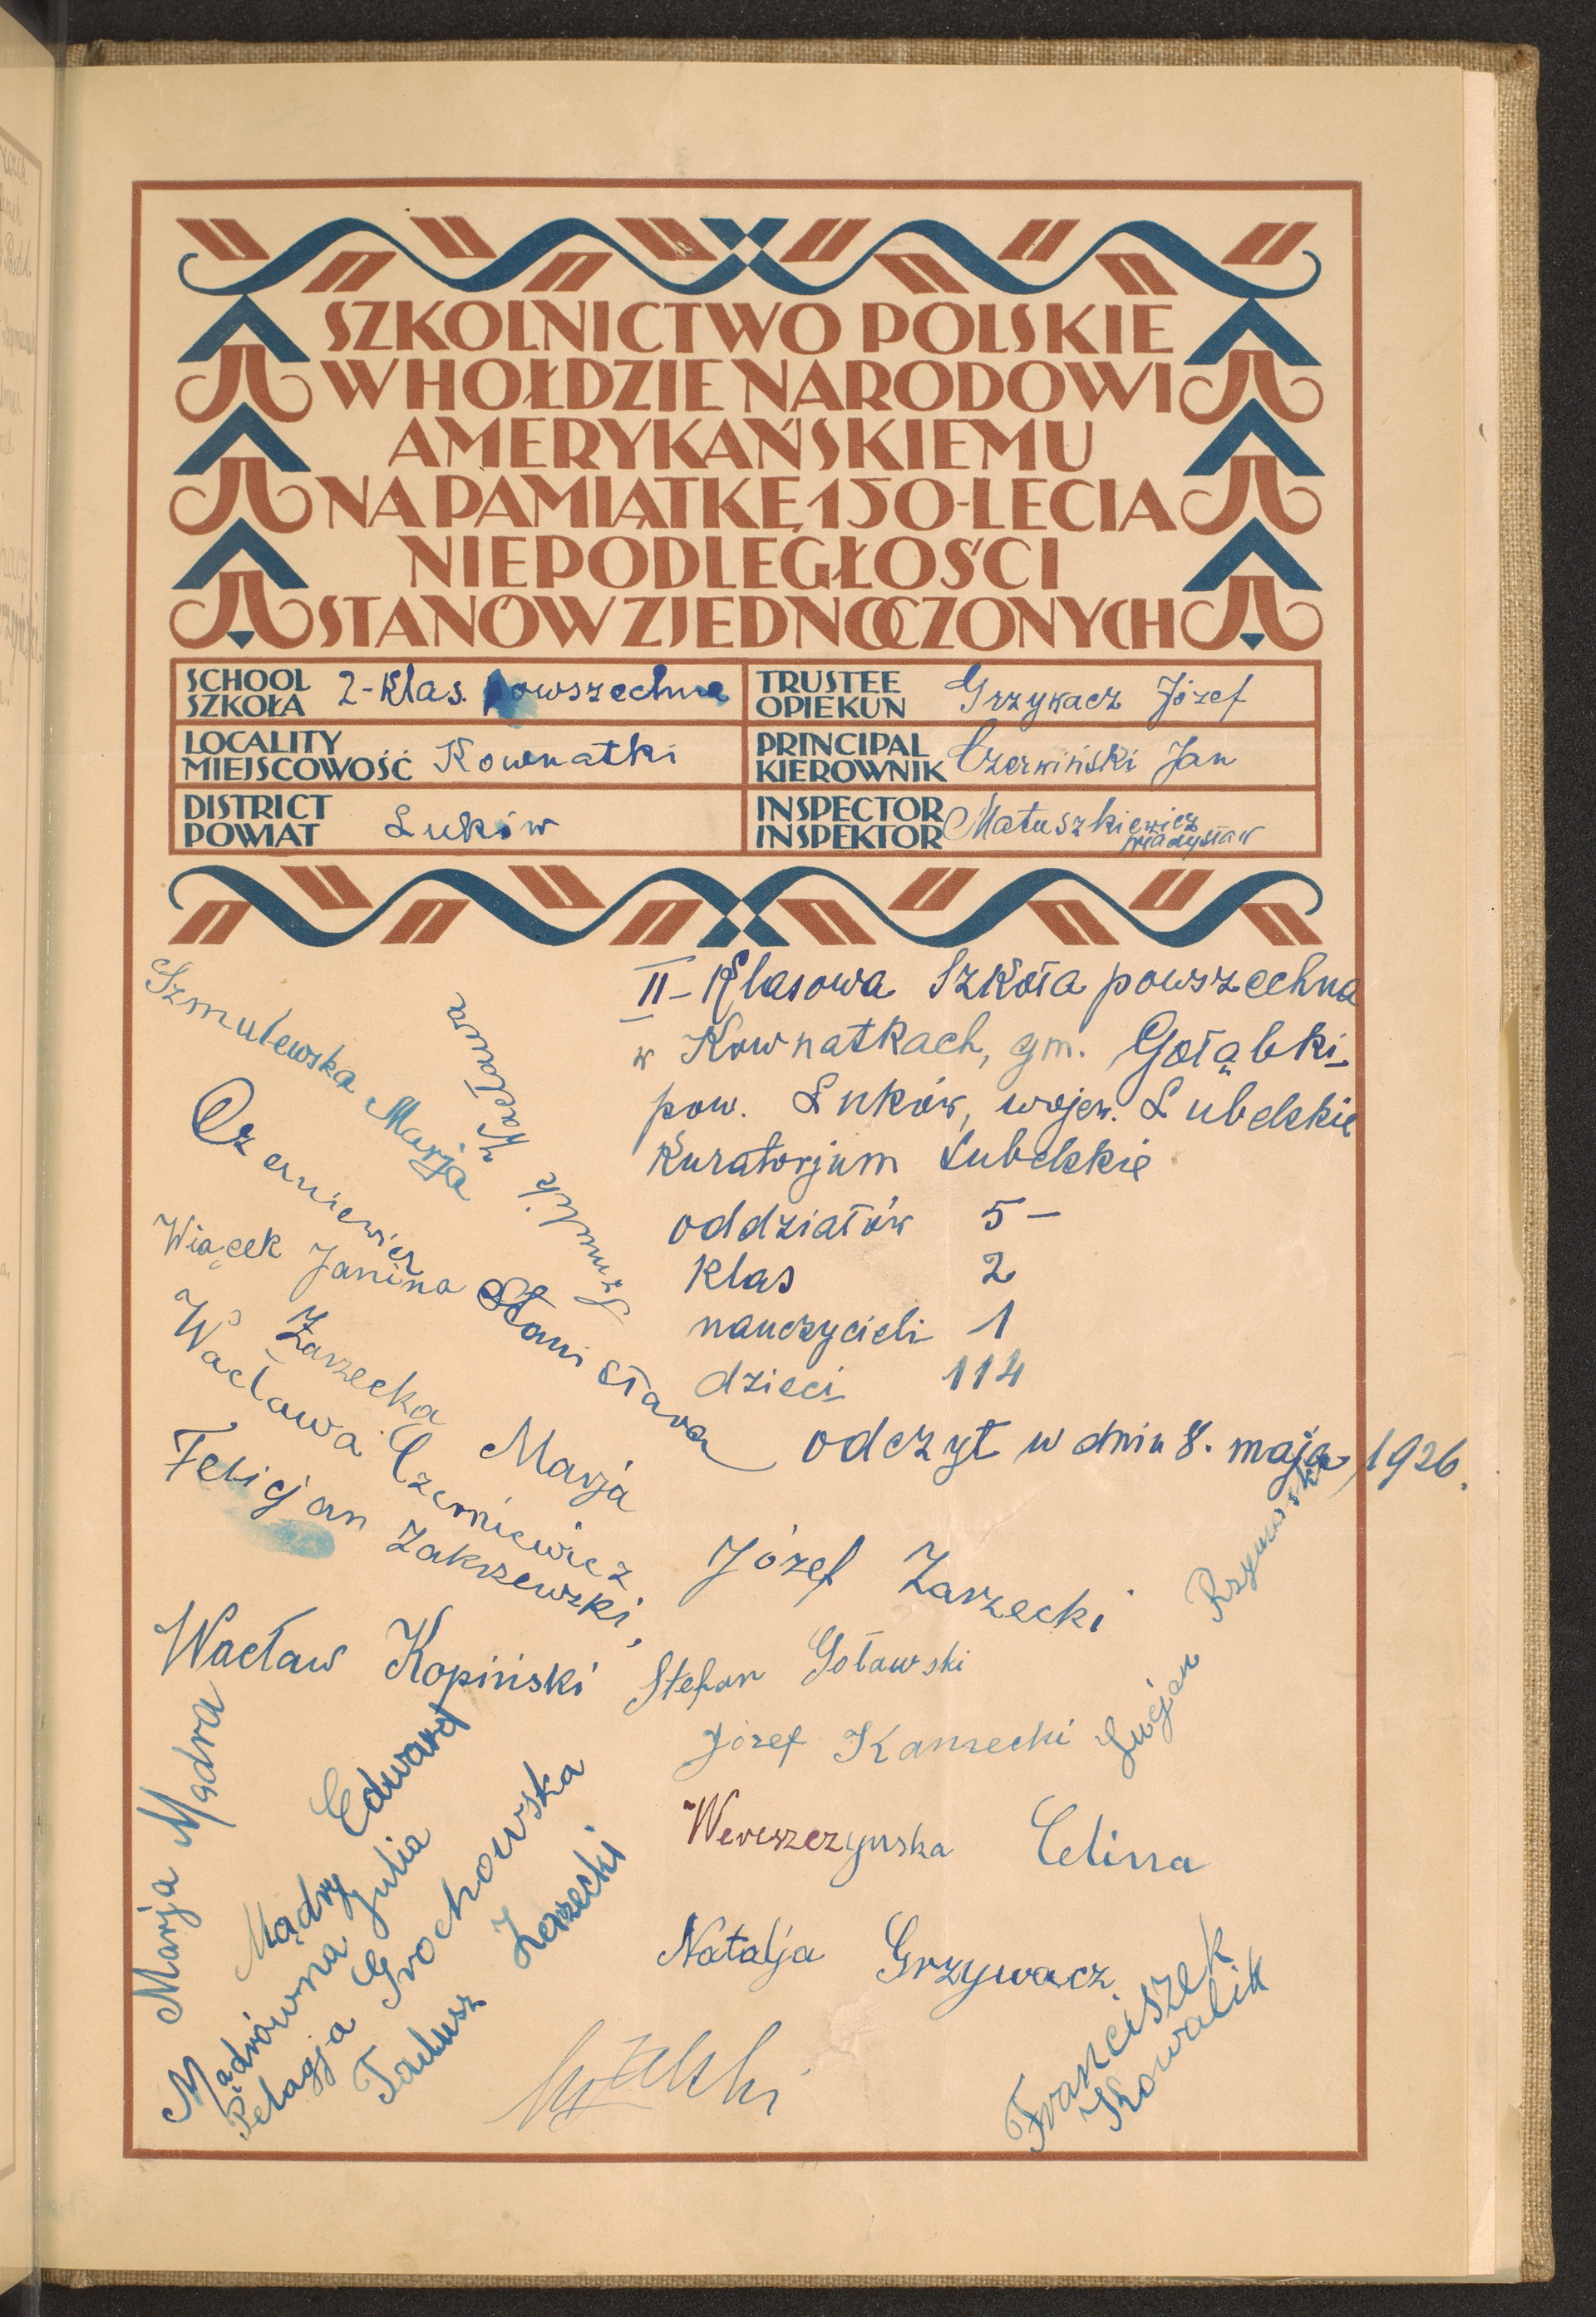 SZKOLNICTWO POLSKIE
W HOŁDZIE NARODOWI
AMERYKAŃSKIEMU
NA PAMIĄTKĘ 150-LECIA
NIEPODLEGŁOŚCI
STANÓW ZJEDNOCZONYCH
SCHOOL
SZKOŁA
2-klas. powszechna
TRUSTEE
OPIEKUN
Grzywacz Józef
LOCALITY
MIEJSCOWOŚĆ
Kownatki
PRINCIPAL
KIEROWNIK
Czerwiński Jan
DISTRICT
POWIAT
Łuków
INSPECTOR
INSPEKTOR
Matuszkiewicz
Władysław
II-Klasowa Szkoła powszechna
w Kownatkach, gm. Gołąbki
pow. Łuków, wojew. Lubelskie
Kuratorjum Lubelskie
oddziałów 5 –
klas 2
nauczycieli 1
dzieci 114
odczyt w dniu 8. maja 1926.
Szmulewska Marja
Szmulik Wacława
Czerniewicz Stanisława
Wiącek Janina
Zarzecka Marja
Wacława Czerniewicz
Felicjan Zakrzewski,
Wacław Kopiński
Józef Zarzecki
Stefan Goławski
Józef Kamecki
Lucjan Rzymowski
Wereszczyńska Celina
Natalja Grzywacz
Marja Mądra
Mądry Edward
Mądrówna Julia
Pelagja Grochowska
Tadusz Zarzecki
Franciszek
Kowalik